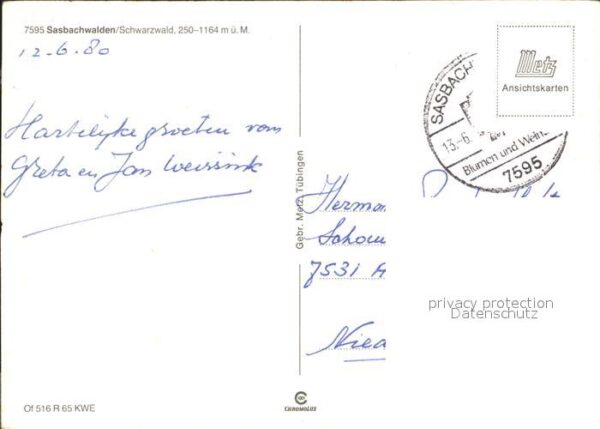 7595 Sasbachwalden/Schwarzwald, 250–1164 m ü. M.
12-6-80
Hartelijke groeten van
Greta en Jan Weissink
Gebr. Metz, Tübingen
Metz
Ansichtskarten
SASBACH
13.-6.
Blumen und Wein
7595
Herman
Schou
7531 A
privacy protection
Datenschutz
Of 516 R 65 KWE
CHROMOLUX